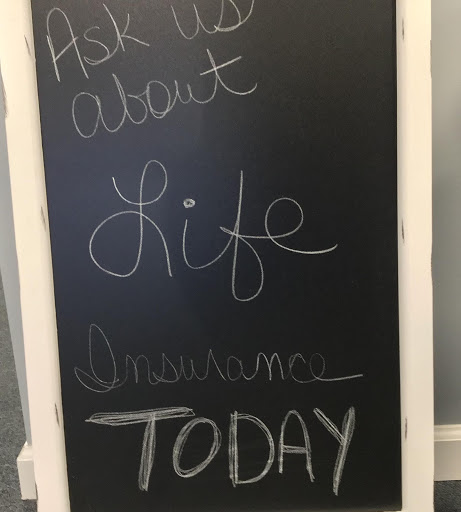 Ask us
about
Life
Insurance
TODAY